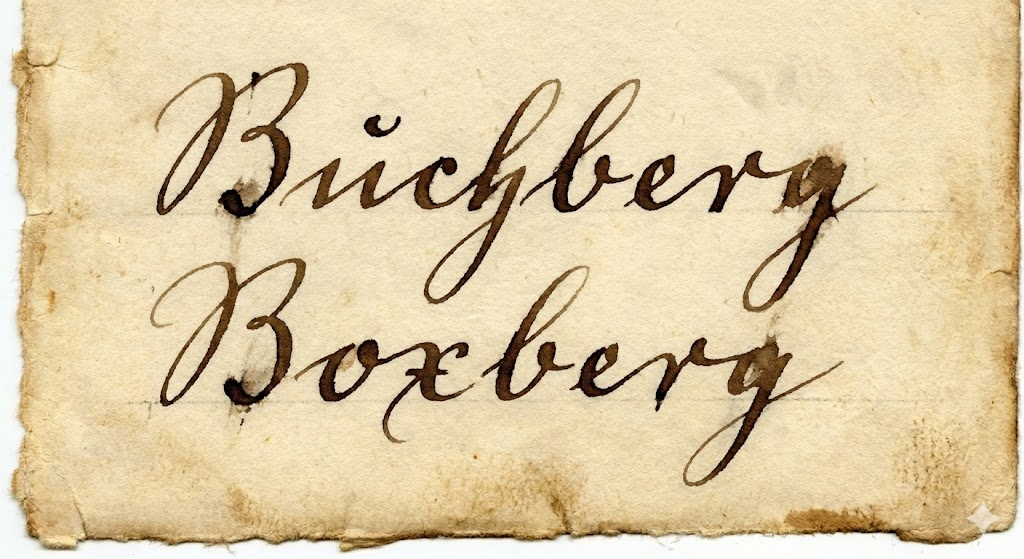 Buchberg
Boxberg